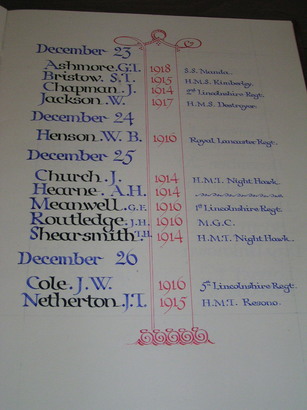 December 23
Ashmore. G.T. 1918 S.S. Mauda.
Bristow. S.T. 1915 H.M.S. Kimberley.
Chapman. J. 1914 2nd Lincolnshire Regt.
Jackson. W. 1917 H.M.S. Destroyer.
December 24
Henson. W. B. 1916 Royal Lancaster Regt.
December 25
Church. J. 1914 H.M.T. Night Hawk.
Hearne. A.H. 1914
Meanwell. G.F. 1916 1st Lincolnshire Regt
Routledge. J.H. 1916 M.G.C.
Shearsmith. T.H. 1914 H.M.T. Night Hawk.
December 26
Cole. J.W. 1916 5th Lincolnshire Regt.
Netherton. J.T. 1915 H.M.T. Resono.